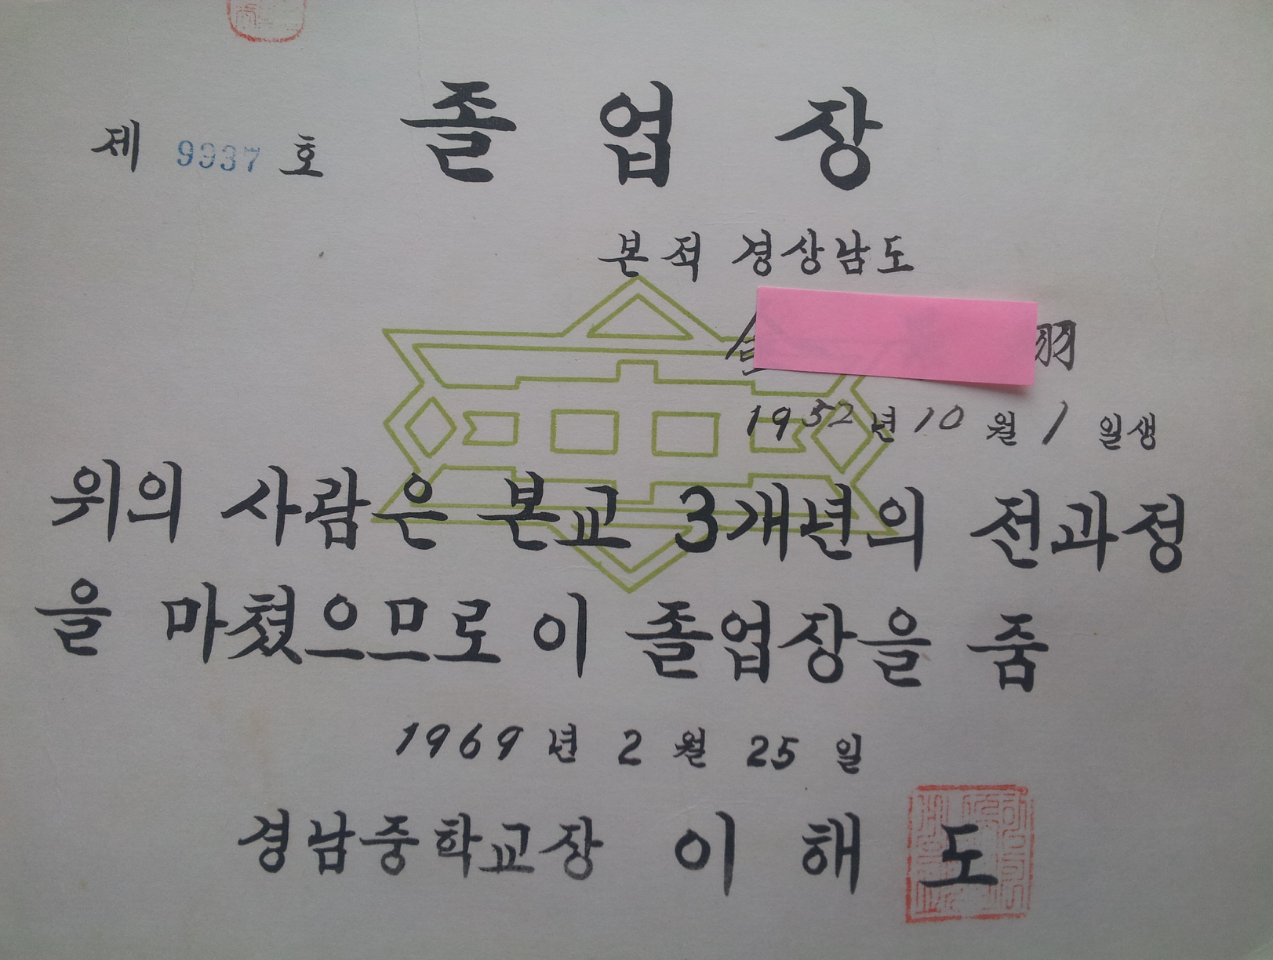 졸업장
제 9937 호
본적 경상남도
1952년 10월 1일생
위의 사람은 본교 3개년의 전과정
을 마쳤으므로 이 졸업장을 줌
1969년 2월 25일
경남중학교장 이해도